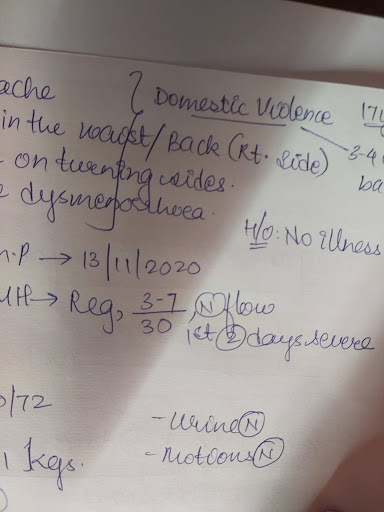 ache { Domestic Violence 17
in the waist/Back (Rt. side) 3-4
on turning sides. ba
dysmenorrhoea.
H/O: No illness
M.P → 13/11/2020
MH → Reg, 3-7/30, (N) flow
1st (2) days severe
0/72
- Urine (N)
1 kgs. - Motions (N)